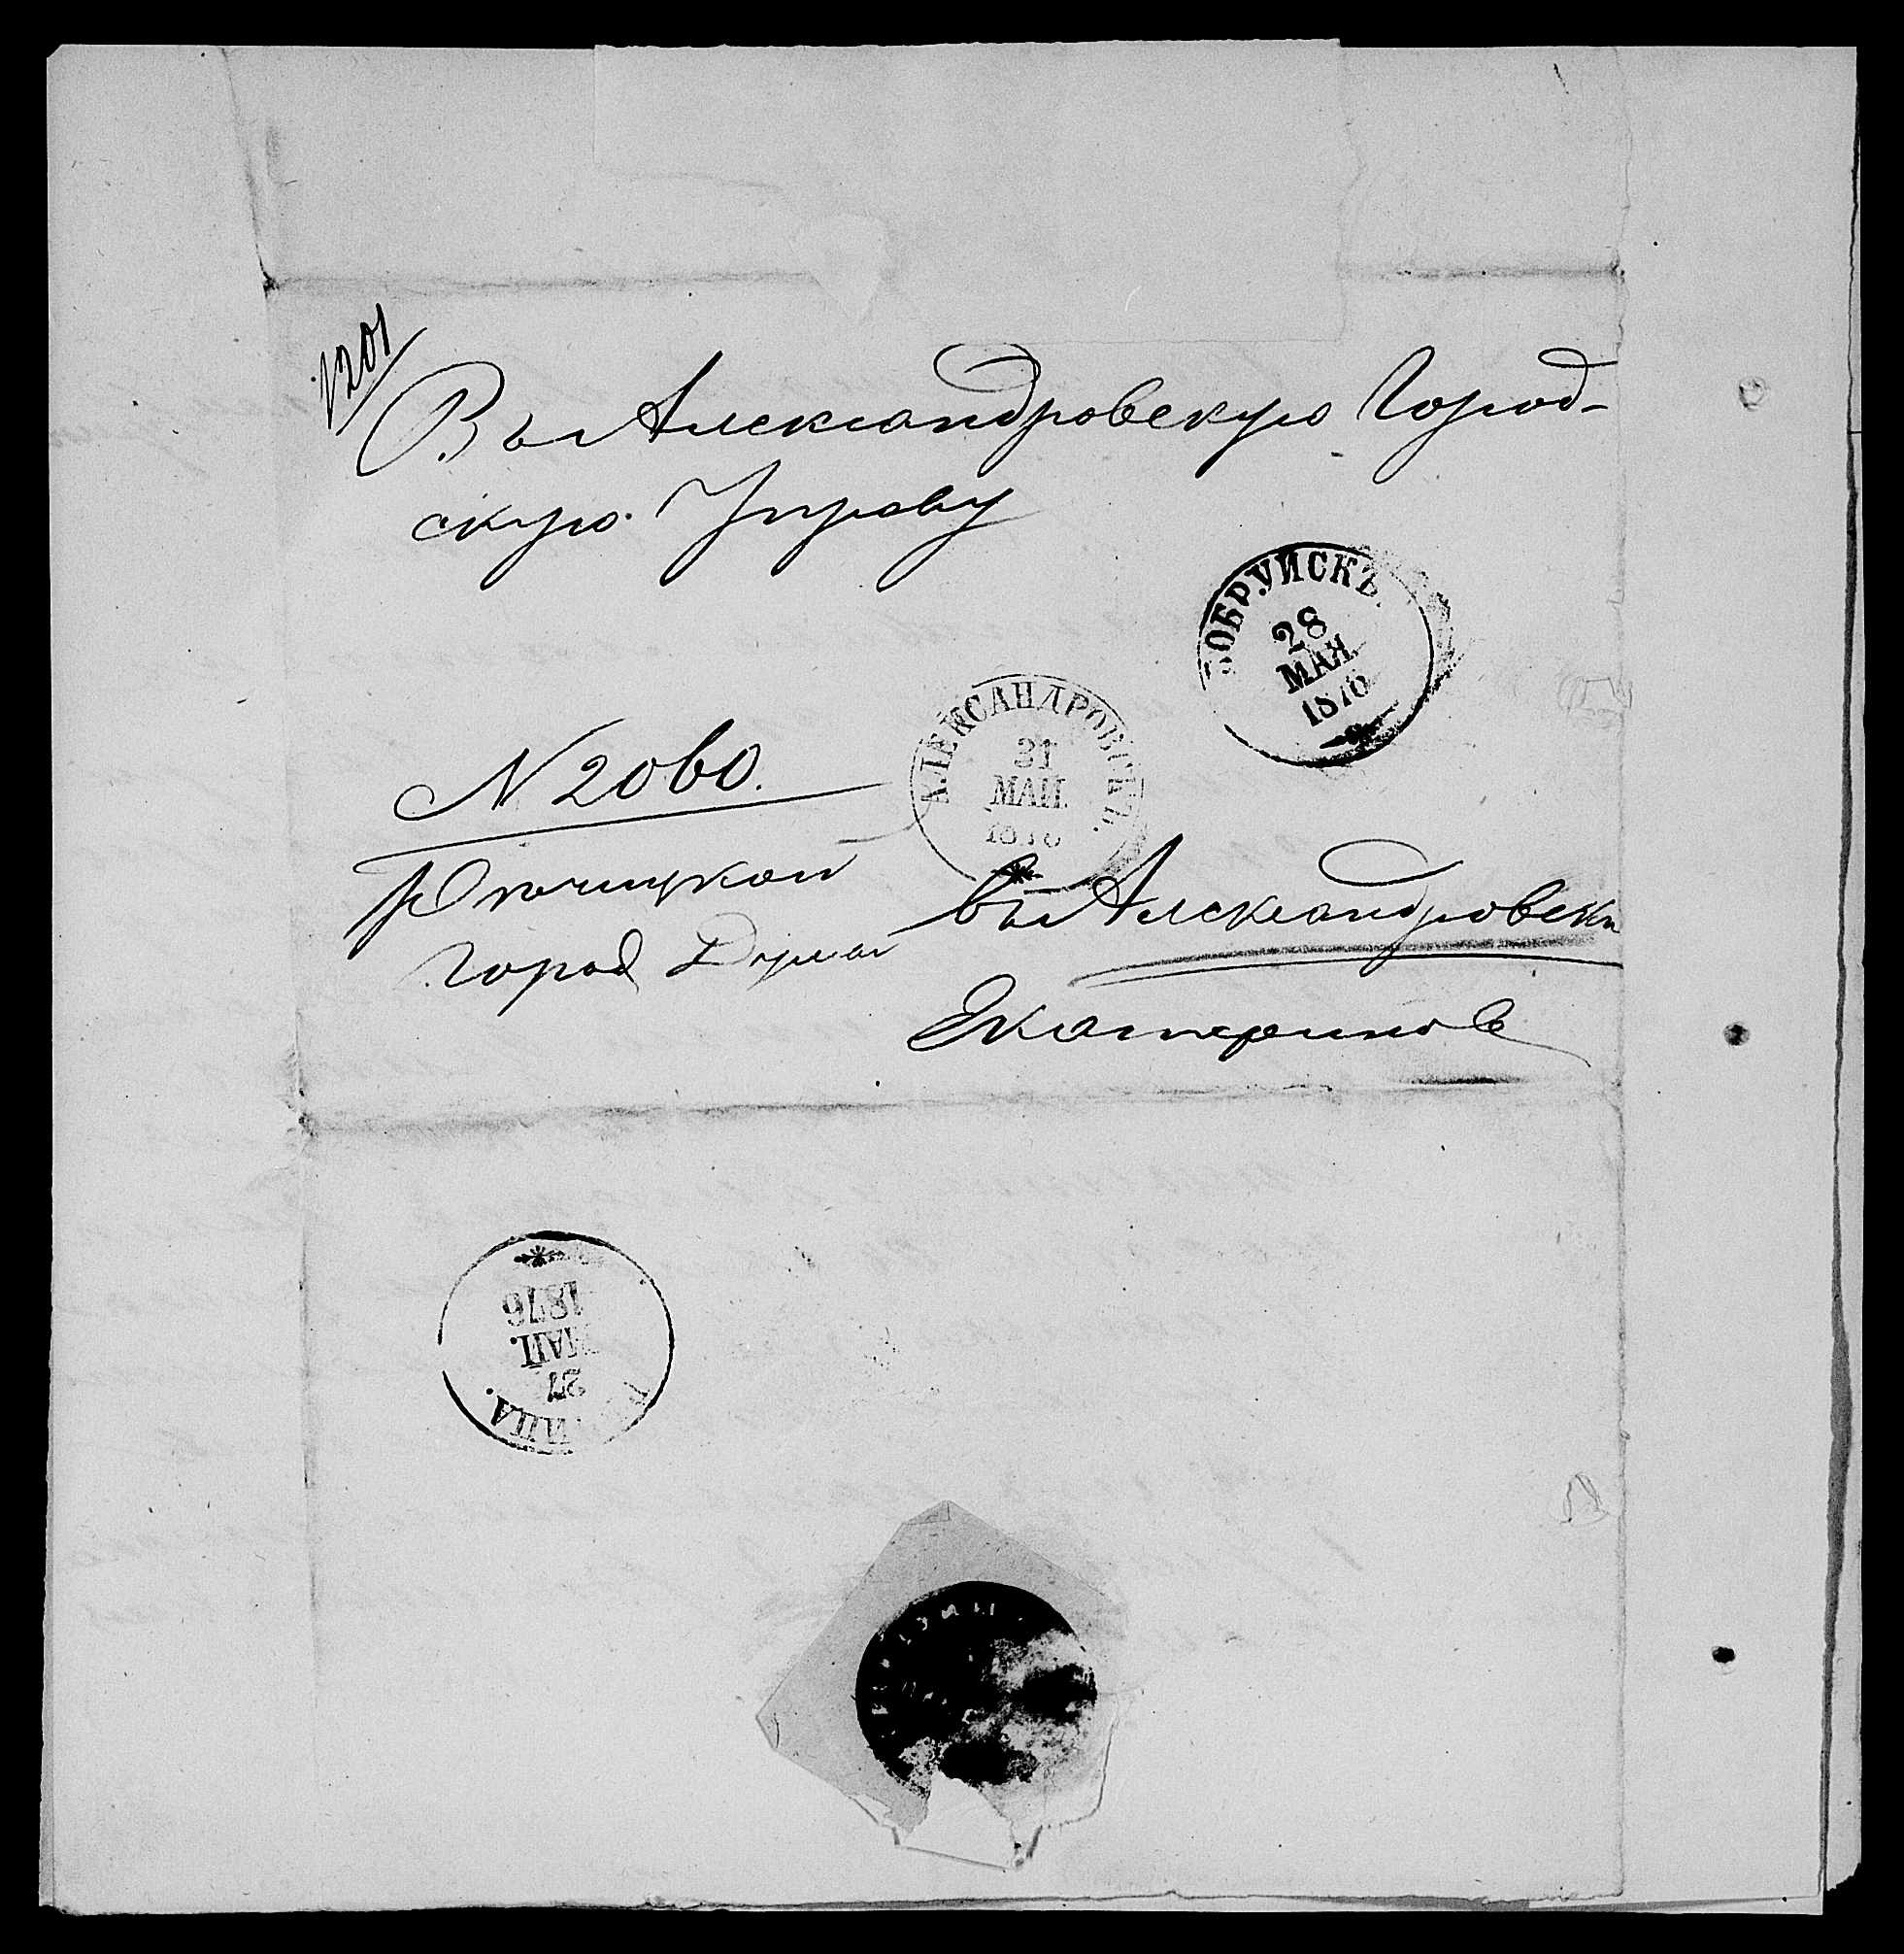 1201
Въ Александровскую Город-
скую Управу
БОБРУЙСКЪ.
28
МАЯ.
1876
АЛЕКСАНДРОВСКЪ.
31
МАЙ.
1876
N 2060.
Город Думы
въ Александровскъ
Екатеринов
1876
МАЙ.
27